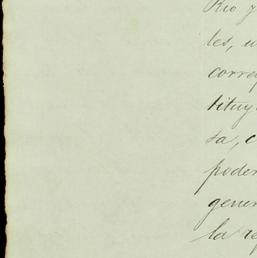 Rio y
les, u
corresp
tituy
sa, c
poder
gener
la re